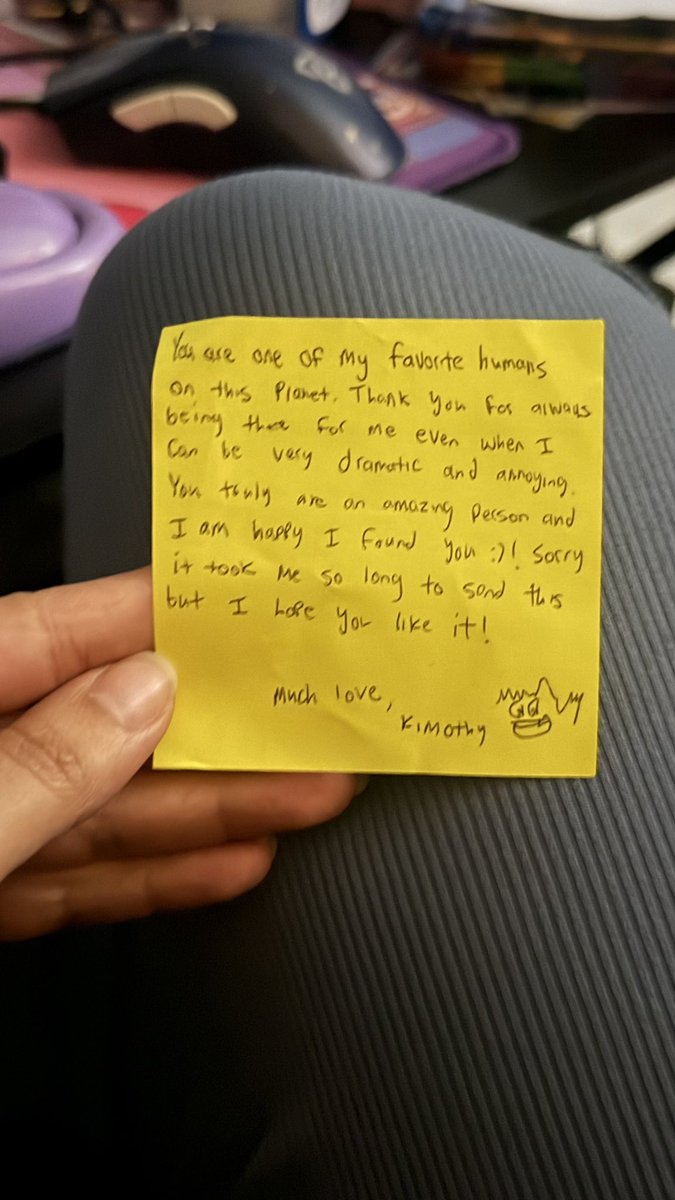 You are one of my favorite humans
on this Planet. Thank you for always
being there for me even when I
Can be very dramatic and annoying.
You truly are an amazing person and
I am happy I found you :)! Sorry
it took me so long to send this
but I hope you like it!
Much love,
Kimothy